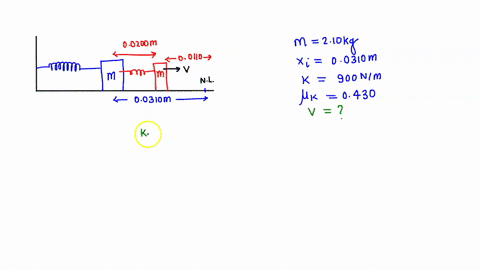 0.0200m
0.0110m
m
m
V
N.L.
0.0310m
K.
m = 2.10kg
xi = 0.0310m
K = 900 N/m
μK = 0.430
V = ?